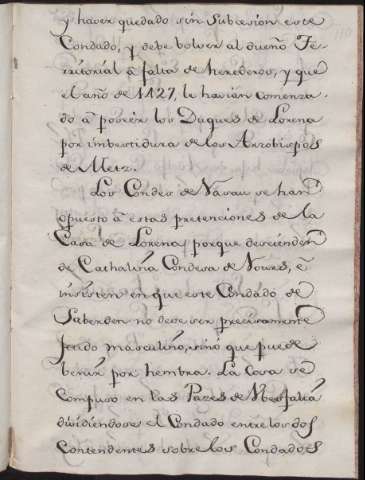 y haver quedado sin Subcesion este
Condado, y debe bolver al dueño Te-
rritorial â falta de herederos, y que
el año de 1127, le havian comenza-
do â poseer los Duques de Lorena
por imbestidura de los Arzobispos
de Metz.
Los Condes de Nasau se han
opuesto â estas pretenciones de la
Casa de Lorena, porque descienden
de Cathalina Condesa de Mours, ê
insisten en que este Condado de
Saberden no debe ser precisamente
feudo masculino, sinó que puede
benir por hembra. La Cosa se
Compuso en las Pazes de Wesfalia
dividiendose el Condado entre los dos
Contendentes sobre los Condados